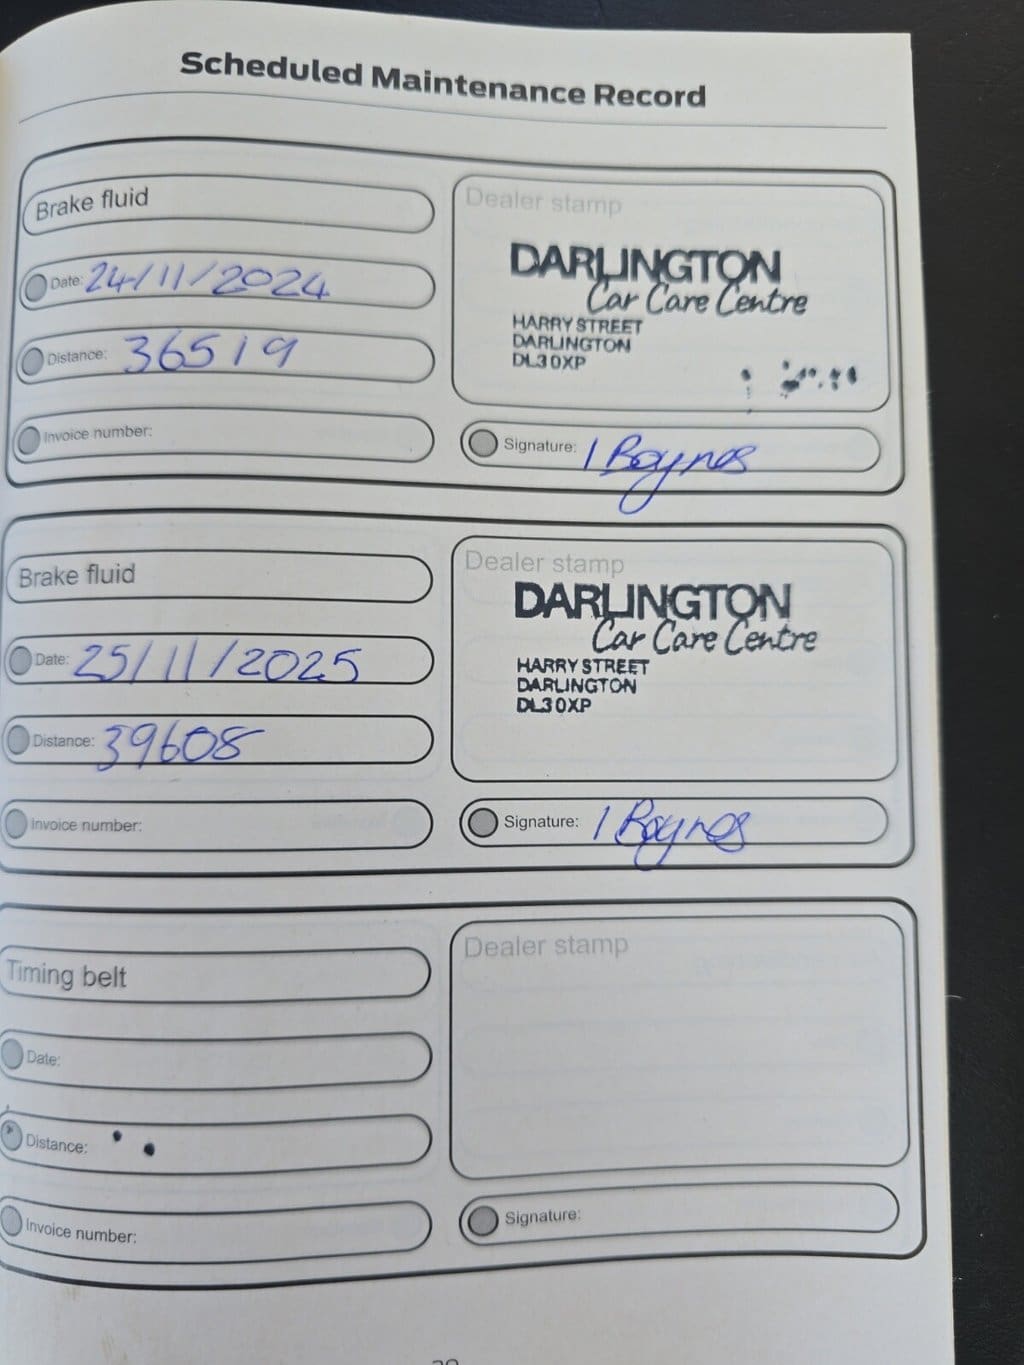 Scheduled Maintenance Record
Brake fluid
Date: 24/11/2024
Distance: 36519
Invoice number:
Dealer stamp
DARLINGTON
Car Care Centre
HARRY STREET
DARLINGTON
DL3 0XP
Signature: I Baynes
Brake fluid
Date: 25/11/2025
Distance: 39608
Invoice number:
Dealer stamp
DARLINGTON
Car Care Centre
HARRY STREET
DARLINGTON
DL3 0XP
Signature: I Baynes
Timing belt
Date:
Distance:
Invoice number:
Dealer stamp
Signature: